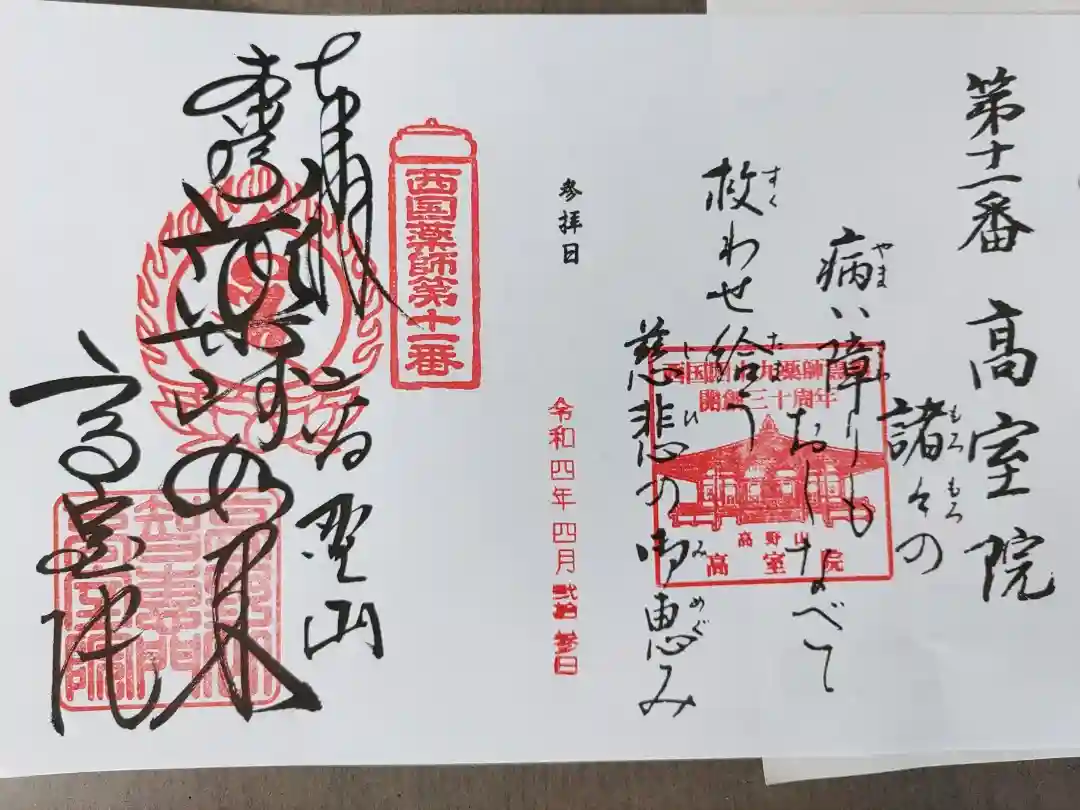 第十一番 高室院
諸々の
もろもろ
病い障りも
やま
おしなべて
救わせ給う
すく
たま
慈悲の御恵み
じひ
み
めぐ
西国四十九薬師霊
開創三十周年
高野山
高室院
参拝日
令和四年四月弐拾参日
西国薬師第十一番
奉拝
高野山
薬師如来
高室院